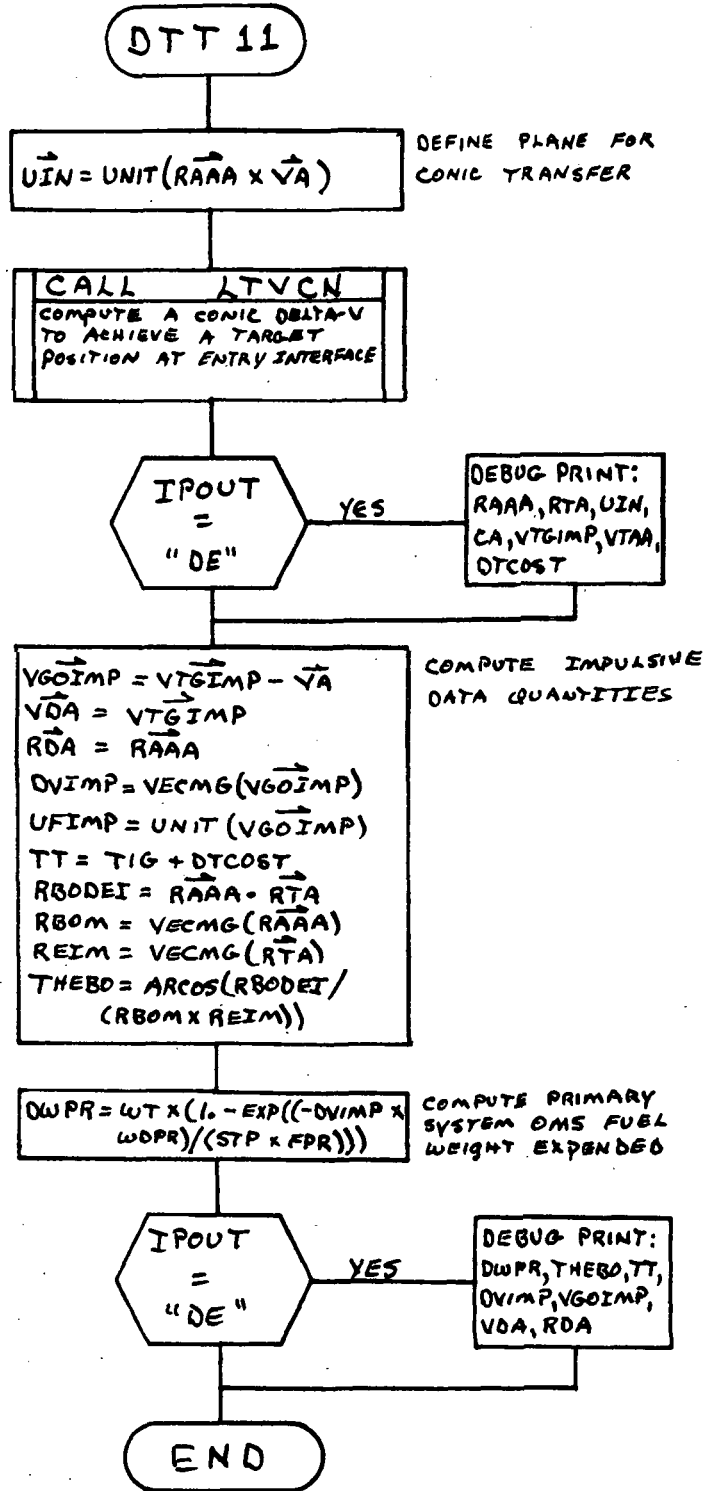 DTT 11
UIN = UNIT(RAAA x VA)
DEFINE PLANE FOR
CONIC TRANSFER
CALL LTVCN
COMPUTE A CONIC DELTA-V
TO ACHIEVE A TARGET
POSITION AT ENTRY INTERFACE
IPOUT
=
"DE"
YES
DEBUG PRINT:
RAAA, RTA, UIN,
CA, VTGIMP, VTAA,
DTCOST
VGOIMP = VTGIMP - VA
VDA = VTGIMP
RDA = RAAA
DVIMP = VECMG(VGOIMP)
UFIMP = UNIT (VGOIMP)
TT = TIG + DTCOST
RBODEI = RAAA • RTA
RBOM = VECMG(RAAA)
REIM = VECMG(RTA)
THEBO = ARCOS(RBODEI/
(RBOM x REIM))
COMPUTE IMPULSIVE
DATA QUANTITIES
DWPR = WT x (1. - EXP((-DVIMP x
WDPR)/(STP x FPR)))
COMPUTE PRIMARY
SYSTEM OMS FUEL
WEIGHT EXPENDED
IPOUT
=
"DE"
YES
DEBUG PRINT:
DWPR, THEBO, TT,
DVIMP, VGOIMP,
VDA, RDA
END